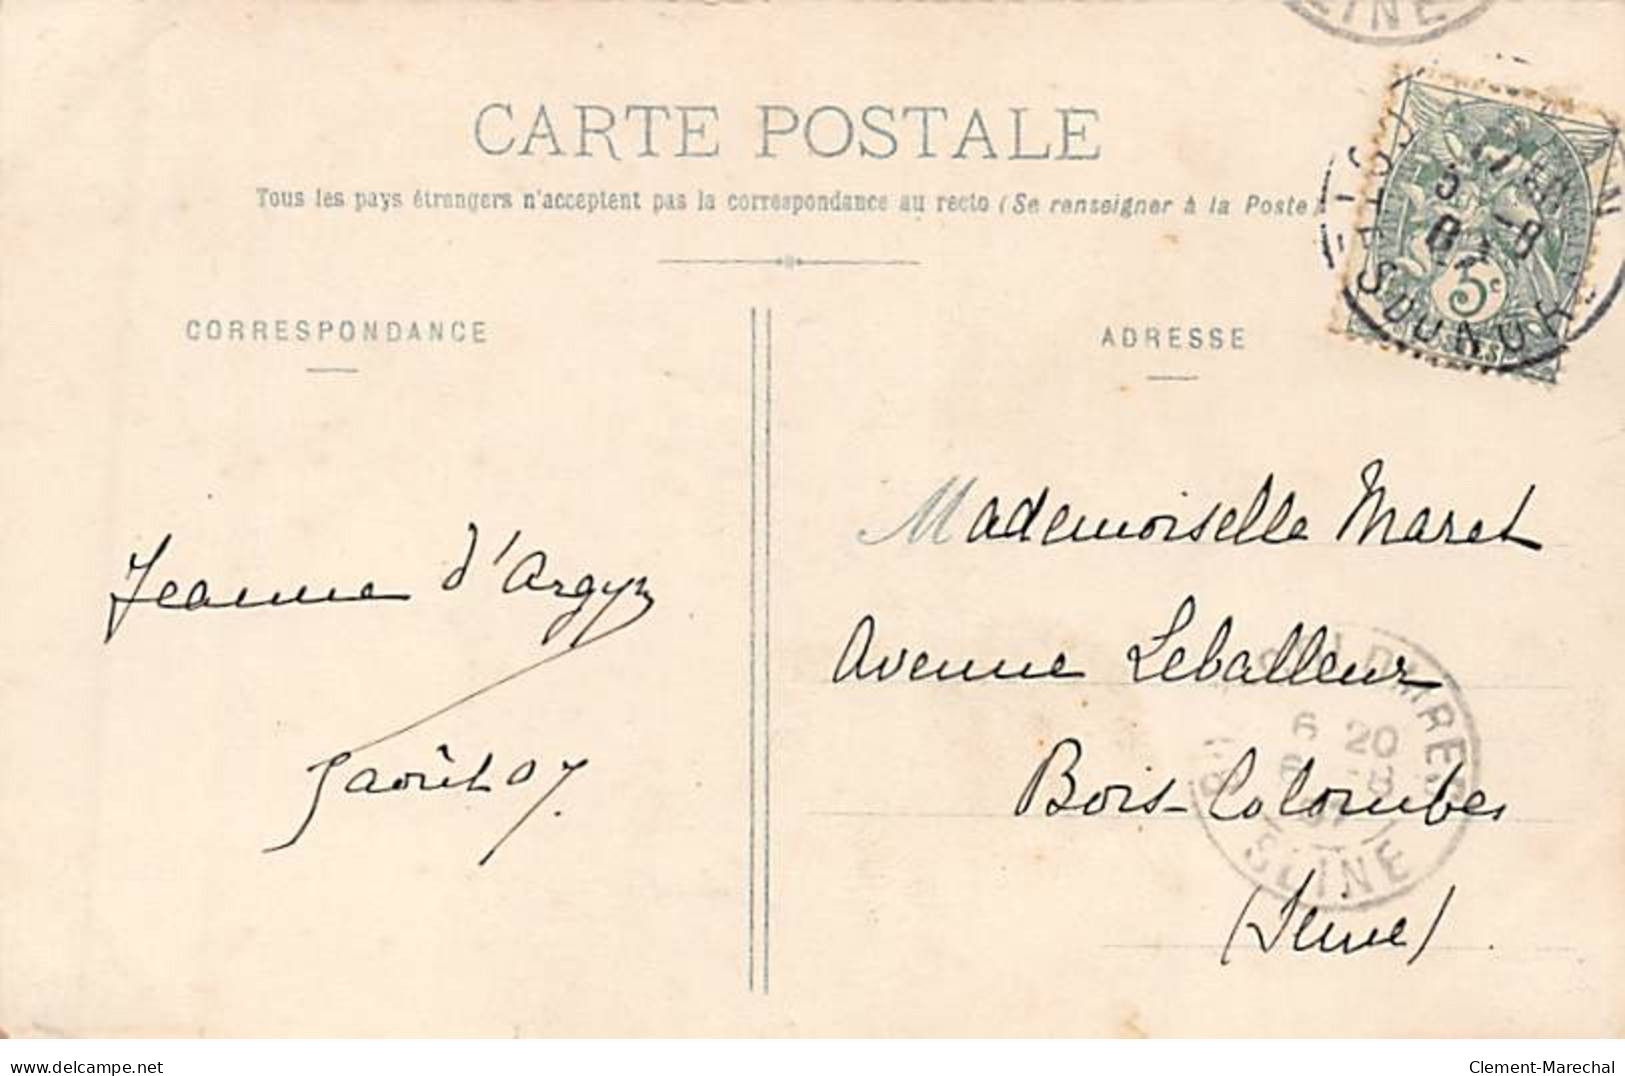 CARTE POSTALE
Tous les pays étrangers n'acceptent pas la correspondance au recto (Se renseigner à la Poste)
CORRESPONDANCE
ADRESSE
Jeanne d'Argyr
5 août 07.
Mademoiselle Maret
Avenue Leballeur
Bois-Colombes
(Seine)
5c
6 20
SEINE
delcampe.net
Clement-Marechal